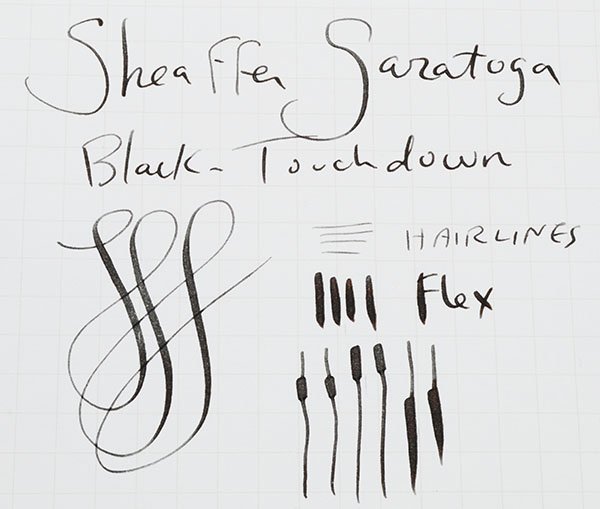 Sheaffer Saratoga
Black - Touchdown
HAIRLINES
Flex